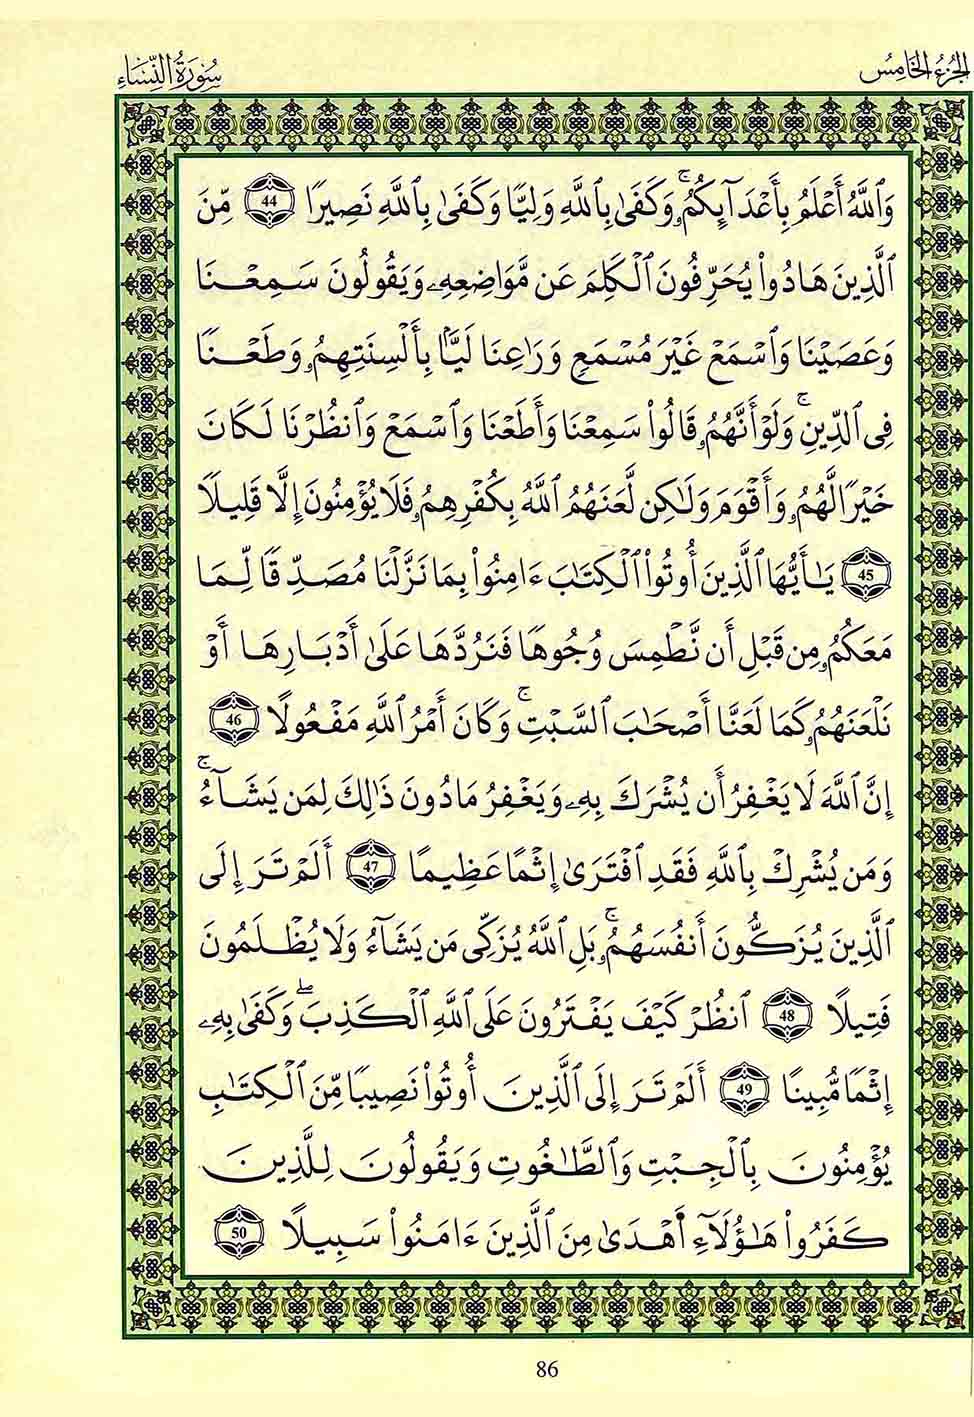 الجزء الخامس
سورة النساء
وَٱللَّهُ أَعۡلَمُ بِأَعۡدَآئِكُمُۥۚ وَكَفَىٰ بِٱللَّهِ وَلِيّٗا وَكَفَىٰ بِٱللَّهِ نَصِيرٗا 44 مِّنَ
ٱلَّذِينَ هَادُواْ يُحَرِّفُونَ ٱلۡكَلِمَ عَن مَّوَاضِعِهِۦ وَيَقُولُونَ سَمِعۡنَا
وَعَصَيۡنَا وَٱسۡمَعۡ غَيۡرَ مُسۡمَعٖ وَرَٰعِنَا لَيَّۢا بِأَلۡسِنَتِهِمُۥ وَطَعۡنٗا
فِي ٱلدِّينِۚ وَلَوۡ أَنَّهُمُۥ قَالُواْ سَمِعۡنَا وَأَطَعۡنَا وَٱسۡمَعۡ وَٱنظُرۡنَا لَكَانَ
خَيۡرٗا لَّهُمُۥ وَأَقۡوَمَ وَلَٰكِن لَّعَنَهُمُ ٱللَّهُ بِكُفۡرِهِمُۥ فَلَا يُؤۡمِنُونَ إِلَّا قَلِيلٗا
45 يَٰٓأَيُّهَا ٱلَّذِينَ أُوتُواْ ٱلۡكِتَٰبَ ءَامِنُواْ بِمَا نَزَّلۡنَا مُصَدِّقٗا لِّمَا
مَعَكُمُۥ مِن قَبۡلِ أَن نَّطۡمِسَ وُجُوهٗا فَنَرُدَّهَا عَلَىٰ أَدۡبَارِهَا أَوۡ
نَلۡعَنَهُمُۥ كَمَا لَعَنَّا أَصۡحَٰبَ ٱلسَّبۡتِۚ وَكَانَ أَمۡرُ ٱللَّهِ مَفۡعُولًا 46
إِنَّ ٱللَّهَ لَا يَغۡفِرُ أَن يُشۡرَكَ بِهِۦ وَيَغۡفِرُ مَا دُونَ ذَٰلِكَ لِمَن يَشَآءُۚ
وَمَن يُشۡرِكۡ بِٱللَّهِ فَقَدِ ٱفۡتَرَىٰ إِثۡمًا عَظِيمًا 47 أَلَمۡ تَرَ إِلَى
ٱلَّذِينَ يُزَكُّونَ أَنفُسَهُمُۥۚ بَلِ ٱللَّهُ يُزَكِّي مَن يَشَآءُ وَلَا يُظۡلَمُونَ
فَتِيلًا 48 ٱنظُرۡ كَيۡفَ يَفۡتَرُونَ عَلَى ٱللَّهِ ٱلۡكَذِبَۖ وَكَفَىٰ بِهِۦ
إِثۡمٗا مُّبِينًا 49 أَلَمۡ تَرَ إِلَى ٱلَّذِينَ أُوتُواْ نَصِيبٗا مِّنَ ٱلۡكِتَٰبِ
يُؤۡمِنُونَ بِٱلۡجِبۡتِ وَٱلطَّٰغُوتِ وَيَقُولُونَ لِلَّذِينَ
كَفَرُواْ هَٰٓؤُلَآءِ أَهۡدَىٰ مِنَ ٱلَّذِينَ ءَامَنُواْ سَبِيلًا 50
86